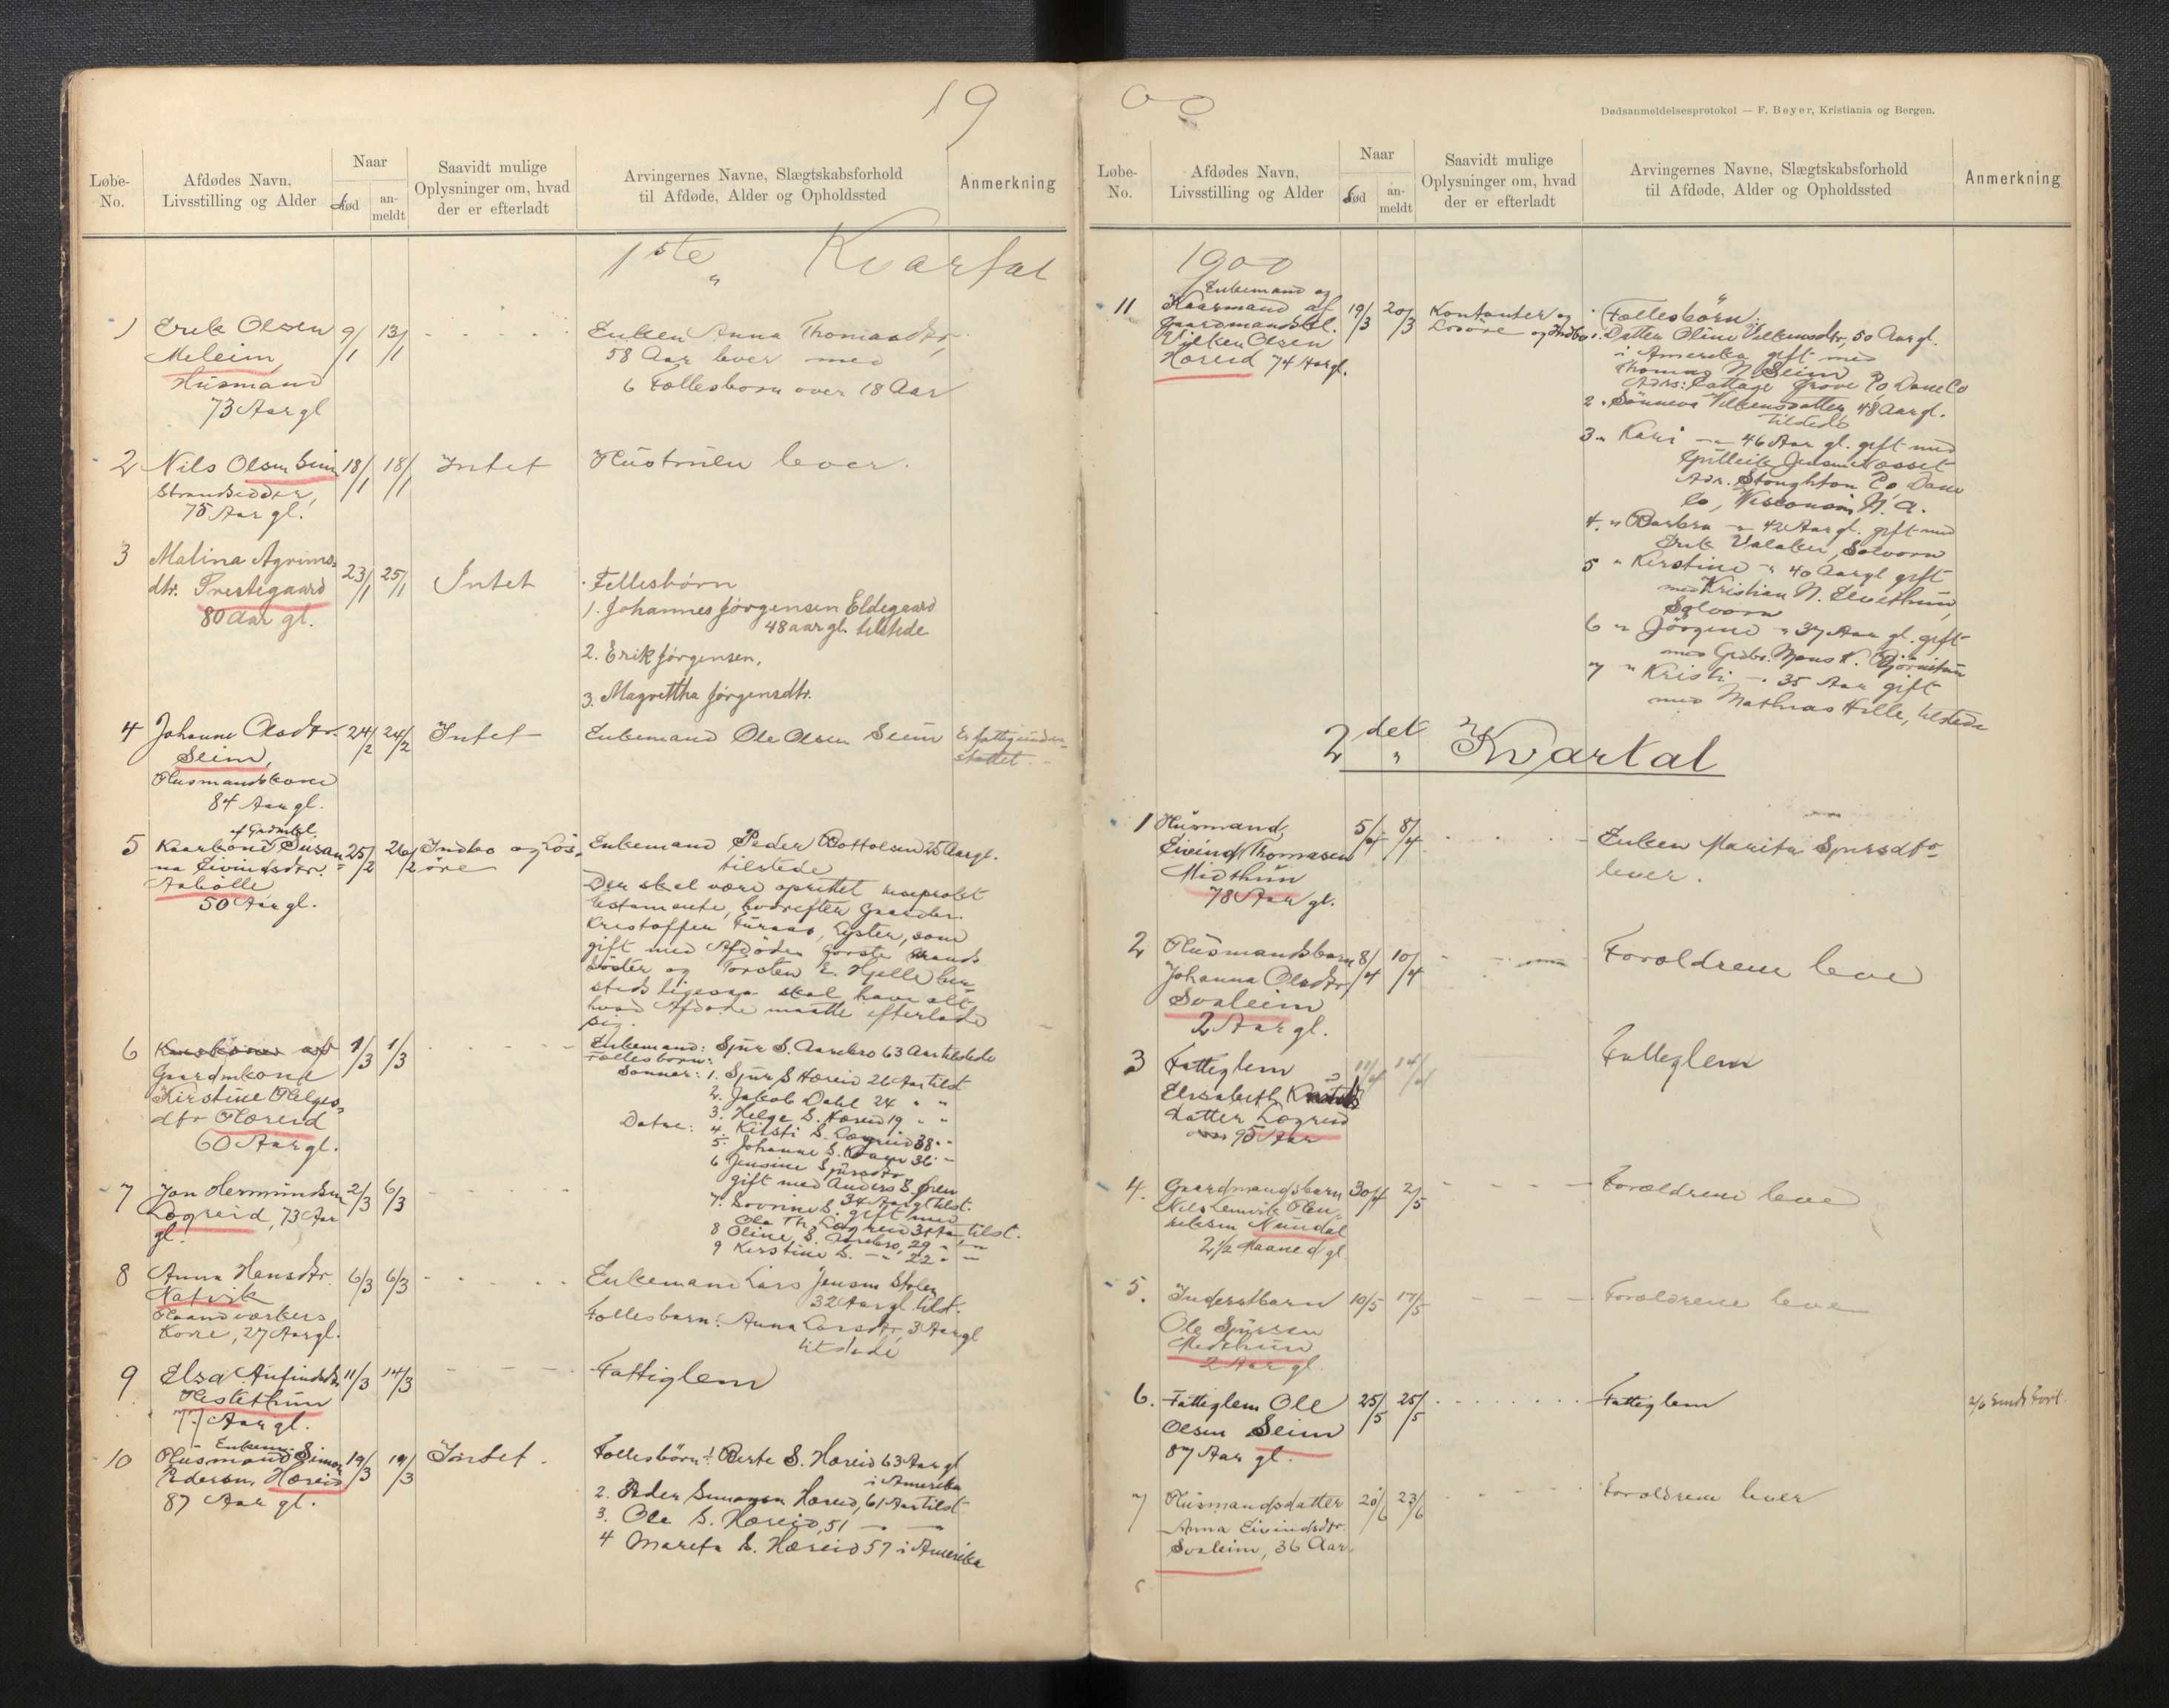 19
Løbe-
No.
Afdødes Navn,
Livsstilling og Alder
Naar
død
an-
meldt
Saavidt mulige
Oplysninger om, hvad
der er efterladt
Arvingernes Navne, Slægtskabsforhold
til Afdøde, Alder og Opholdssted
Anmerkning
1ste Kvartal
1 Erik Olsen 9/1 13/1 - - - - - Enken Anna Thomasdtr,
Meleim, 58 Aar lever med
Husmand 6 Fællesborn over 18 Aar
73 Aar gl
2 Nils Olsen Seim 18/1 18/1 Intet Hustruen lever.
Strandsidder,
75 Aar gl.
3 Malina Agrims-
dtr. Prestegaard 23/1 25/1 Intet Fellesbørn
80 Aar gl. 1. Johannes Jørgensen Eldegaard
48 aar gl. tilstede
2. Erik Jørgensen,
3. Magrettha Jørgensdtr.
4 Johanne Olsdtr 24/2 24/2 Intet Enkemand Ole Olsen Seim Er fattigunder-
Seim, støttet
Husmandskone
84 Aar gl.
af Grdmkl.
5 Kaarkone Susan- 25/2 26/2 Indbo og Løs- Enkemand Peder Bottolsen 25 Aar gl.
na Eivindsdtr. øre tilstede
Aabølle Der skal være oprettet reciprokt
50 Aar gl. Testamente, hvorefter Gaardbr.
Kristoffer Furaas, Lyster, som
gift med Afdødes første Mands
Søster og Torsten E. Hjelle her-
steds ligesaa skal have alt,
hvad Afdøde maatte efterlade
sig.
6 Kaarkone af 1/3 1/3 - - - - Enkemand: Sjur S. Aarebro 63 Aar tilstede
Gaardmkone Fællesborn:
Kirstine Helges- Sønner: 1. Sjur S Høreid 26 Aar tilst
dtr Høreid 2. Jakob Dahl 24 " "
60 Aar gl. 3. Helge S. Høreid 19 " "
Døtre: 4. Kitsti S. Løgreid 38 " "
5. Johanne S. Kvam 36 " "
6 Jensine Sjursdtr
gift med Anders S. Øren
34 Aar gl tilst.
7. Severine S. gift med
Ole Th. Løgreid 31 Aar tilst.
8 Oline S. Aarebro, 29 - " -
9 Kirstine S. - " - 22 - " -
7 Jon Hermundsen 2/3 6/3 - - - -
Løgreid, 73 Aar
gl.
8 Anna Hansdtr. 6/3 6/3 - - - - Enkemand Lars Jensen Stolen
Natvik 32 Aar gl. tilst.
Haandværkers Fællesbarn: Anna Larsdtr, 3 Aar gl
Kone, 27 Aar gl. tilstede
9 Elsa Anfindsdtr 11/3 14/3 - - - Fattiglem
Hestethun
77 Aar gl.
Enkem.
10 Husmand Simon 19/3 19/3 Intet. Fællesbörn: 1. Berte S. Høreid 63 Aar gl
Pedersen, Høreid i Amerika
87 Aar gl. 2. Peder Simonsen Høreid, 61 Aar tilst
3. Ole S. Høreid, 51 — —
4 Mareta S. Høreid 57 i Amerika
00
Dødsanmeldelsesprotokol — F. Beyer, Kristiania og Bergen.
Løbe-
No.
Afdødes Navn,
Livsstilling og Alder
Naar
død
an-
meldt
Saavidt mulige
Oplysninger om, hvad
der er efterladt
Arvingernes Navne, Slægtskabsforhold
til Afdøde, Alder og Opholdssted
Anmerkning
1900
Enkemand og
11 Kaarmand af 19/3 20/3 Kontanter og Fællesbörn:
Gaardmandskl. Losøre og Indbo 1. Datter Oline Vilkensdtr, 50 Aar gl.
Vilken Olsen i Amerika gift med
Høreid 74 Aar gl. Thomas N. Seim
Adrs: Cottage Grove Po Dane Co
2. Sönneva Vilkensdatter, 48 Aar gl.
tilstede
3 " Kari — 46 Aar gl. gift med
Gulleik Jensen Næsset
Adr. Stoughton Po Dane
Co, Visconsin N. A.
4. " Barbra - " 42 Aar gl. gift med
Erik Valaker, Solvorn
5 " Kirstine - " 40 Aar gl gift
med Kristian N. Elvethun,
Solvorn
6 " Jörgine - " 37 Aar gl. gift
med Grdbr. Mons K. Bjørnetun
7 " Kristi - 35 Aar gift
med Mathias Hille, tilstede
2det Kvartal
1 Husmand 5/4 8/4 - - - Enken Marita Sjursdtr
Eivind Thomasen lever.
Midthun
78 Aar gl.
2 Husmandsbarn 8/4 10/4 - - - Forældrene leve
Johanna Olsdtr
Svaleim
2 Aar gl.
3 Fattiglem 11/4 14/4 Fattiglem
Elisabeth Knuts
datter Løgreid
95 Aar
4. Gaardmandsbarn 30/4 2/5 - - - - Forældrene leve
Nils Lemvik Olen
Nundal
2 1/2 Maaned gl.
5. Inderstbarn 10/5 17/5 - - - Forældrene leve
Ole Sjursen
Midthun
2 Aar gl.
6. Fattiglem Ole 25/5 25/5 - - - - - Fattiglem 2/6
Olsen Seim
87 Aar gl.
7 Husmandsdatter 20/6 23/6 - - - - Forældrene lever
Anna Eivindsdtr.
Svaleim, 36 Aar.